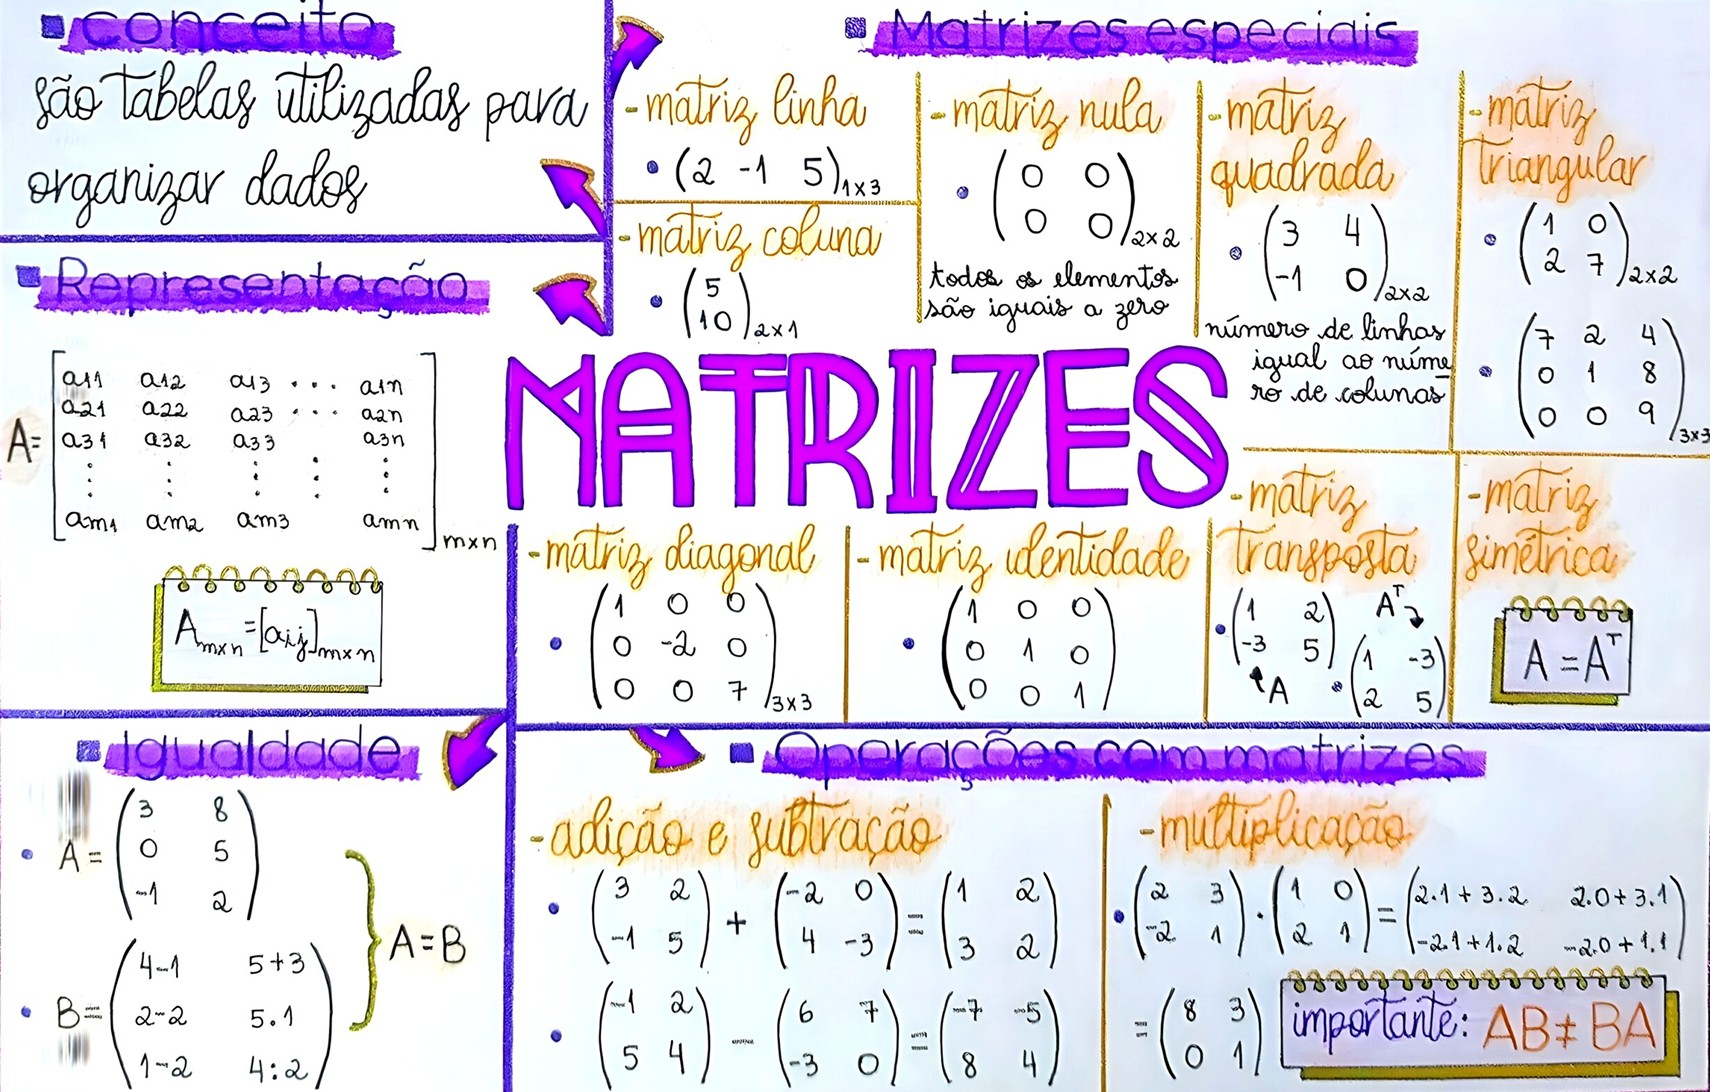 conceito
são tabelas utilizadas para
organizar dados
Representação
A= [ a11 a12 a13 ... a1n
a21 a22 a23 ... a2n
a31 a32 a33 a3n
⋮ ⋮ ⋮ ⋮ ⋮
am1 am2 am3 amn ] mxn
Amxn = [aij]mxn
Igualdade
A= ( 3 8
0 5
-1 2 )
B= ( 4-1 5+3
2-2 5.1
1-2 4:2 )
A=B
MATRIZES
Matrizes especiais
-matriz linha
• (2 -1 5)1x3
-matriz coluna
• ( 5
10 )2x1
-matriz nula
• ( 0 0
0 0 )2x2
todos os elementos
são iguais a zero
-matriz
quadrada
• ( 3 4
-1 0 )2x2
número de linhas
igual ao núme
ro de colunas
-matriz
triangular
• ( 1 0
2 7 )2x2
• ( 7 2 4
0 1 8
0 0 9 )3x3
-matriz diagonal
• ( 1 0 0
0 -2 0
0 0 7 )3x3
-matriz identidade
• ( 1 0 0
0 1 0
0 0 1 )
-matriz
transposta
• ( 1 2
-3 5 )
A
Aᵀ
• ( 1 -3
2 5 )
-matriz
simétrica
A = Aᵀ
Operações com matrizes
-adição e subtração
• ( 3 2
-1 5 ) + ( -2 0
4 -3 ) = ( 1 2
3 2 )
• ( -1 2
5 4 ) - ( 6 7
-3 0 ) = ( -7 -5
8 4 )
-multiplicação
• ( 2 3
-2 1 ) . ( 1 0
2 1 ) = ( 2.1+3.2 2.0+3.1
-2.1+1.2 -2.0+1.1 )
= ( 8 3
0 1 )
importante: AB ≠ BA